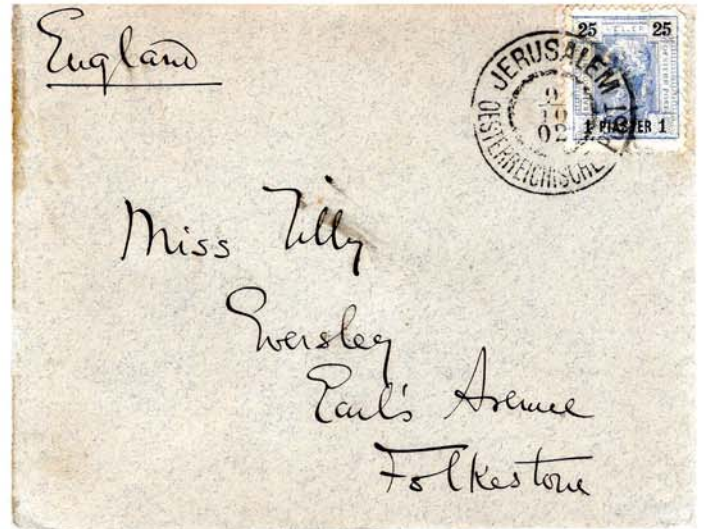 England
25 25
1 PIASTER 1
JERUSALEM
9
10
02
OESTERREICHISCHE POST
Miss Tilly
Eversley
Earl's Avenue
Folkestone